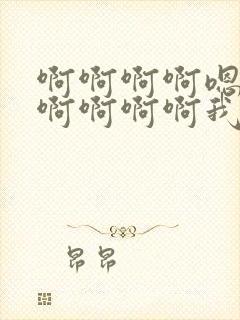 啊啊啊啊嗯
啊啊啊啊我
昂昂